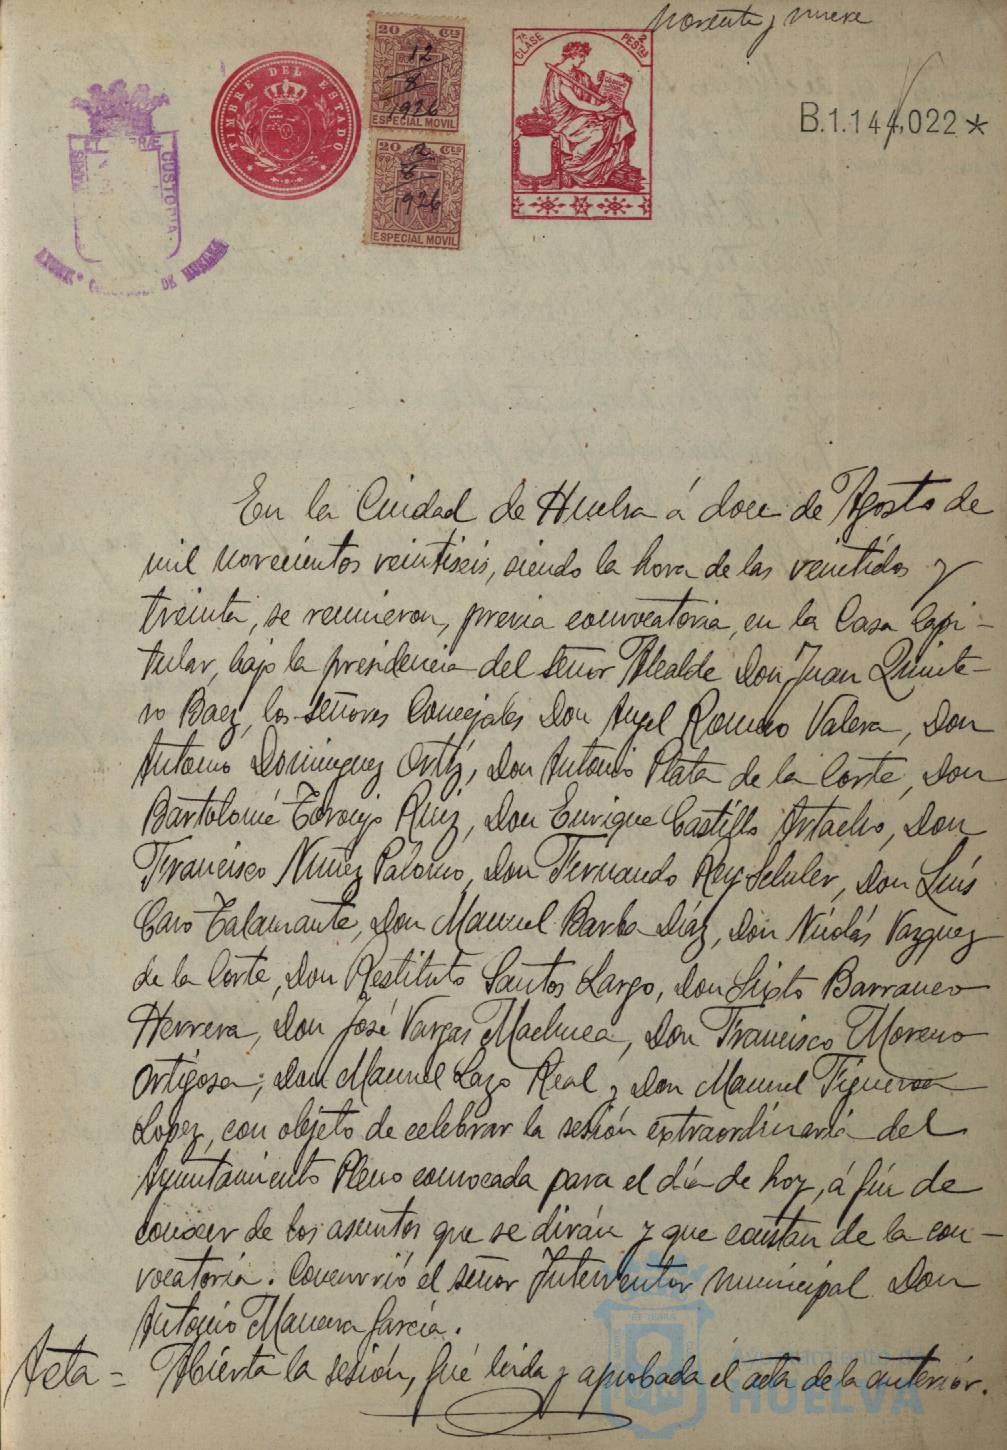 noventa y nueve
TIMBRE DEL ESTADO
20 Cts
12/8/1926
ESPECIAL MOVIL
20 Cts
1926
ESPECIAL MOVIL
7ª CLASE
2 PESTAS
B.1.144,022*
CUSTODIA
DE HUELVA
En la Ciudad de Huelva á doce de Agosto de
mil novecientos veintiseis, siendo la hora de las veintidos y
treinta, se reunieron, previa convocatoria, en la Casa Capi-
tular, bajo la presidencia del señor Alcalde Don Juan Quinte-
ro Baez, los señores Concejales Don Angel Romero Valera, Don
Antonio Dominguez Ortíz, Don Antonio Plata de la Corte, Don
Bartolomé Toronjo Ruiz, Don Enrique Castillo Artacho, Don
Francisco Nuñez Palomo, Don Fernando Rey Schuler, Don Luís
Caro Talamante, Don Manuel Barba Díaz, Don Nicolás Vazquez
de la Corte, Don Restituto Santos Largo, Don Sixto Barranco
Herrera, Don José Vargas Machuca, Don Francisco Moreno
Ortigosa; Don Manuel Lazo Real y Don Manuel Figueroa
Lopez, con objeto de celebrar la sesión extraordinaria del
Ayuntamiento Pleno convocada para el día de hoy, á fín de
conocer de los asuntos que se dirán y que constan de la con-
vocatoria. Concurrió el señor Interventor municipal Don
Antonio Manuera García.
Acta = Abierta la sesión, fué leida y aprobada el acta de la anterior.
Ayuntamiento de
HUELVA